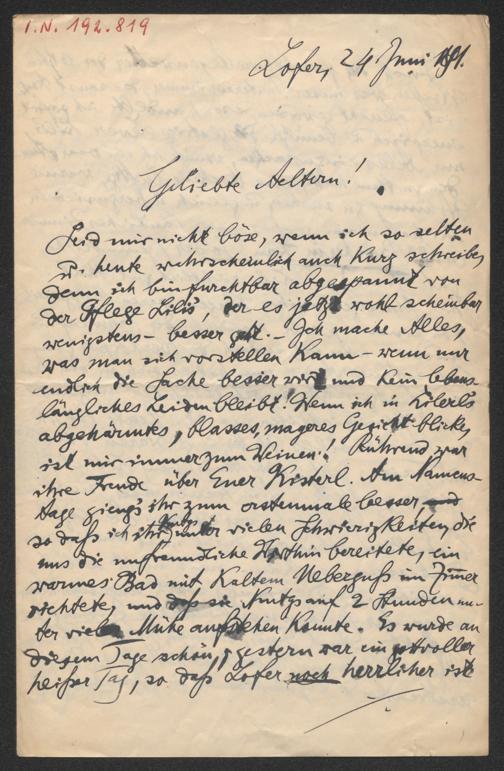 I.N. 192.819
Lofer, 24 Juni 1891.
Geliebte Aeltern!
Seid mir nicht böse, wenn ich so selten
u. heute wahrscheinlich auch Kurz schreibe,
denn ich bin furchtbar abgespannt von
der Pflege Lilis, der es jetzt wohl scheinbar
wenigstens - besser geht. - Ich mache Alles,
was man sich vorstellen Kann - wenn nur
endlich die Sache besser wird und Kein lebens-
längliches Leiden bleibt! Wenn ich in
abgehärmtes, blasses, mageres Gesicht blicke,
ist mir immer zum Weinen! Rührend war
ihre Freude über Euer Kisterl. Am Namens-
tage gieng's ihr zum erstenmale besser,
so daß ich ihr unter vielen Schwierigkeiten, die
uns die unfreundliche Wirthin bereitete, ein
warmes Bad mit Kaltem Ueberguß im Zimmer
richtete, und auf 2 Stunden un-
ter vieler Mühe aufstehen Konnte. Es wurde an
diesem Tage schön, gestern war ein prachtvoller
heißer Tag, so daß Lofer noch herrlicher ist